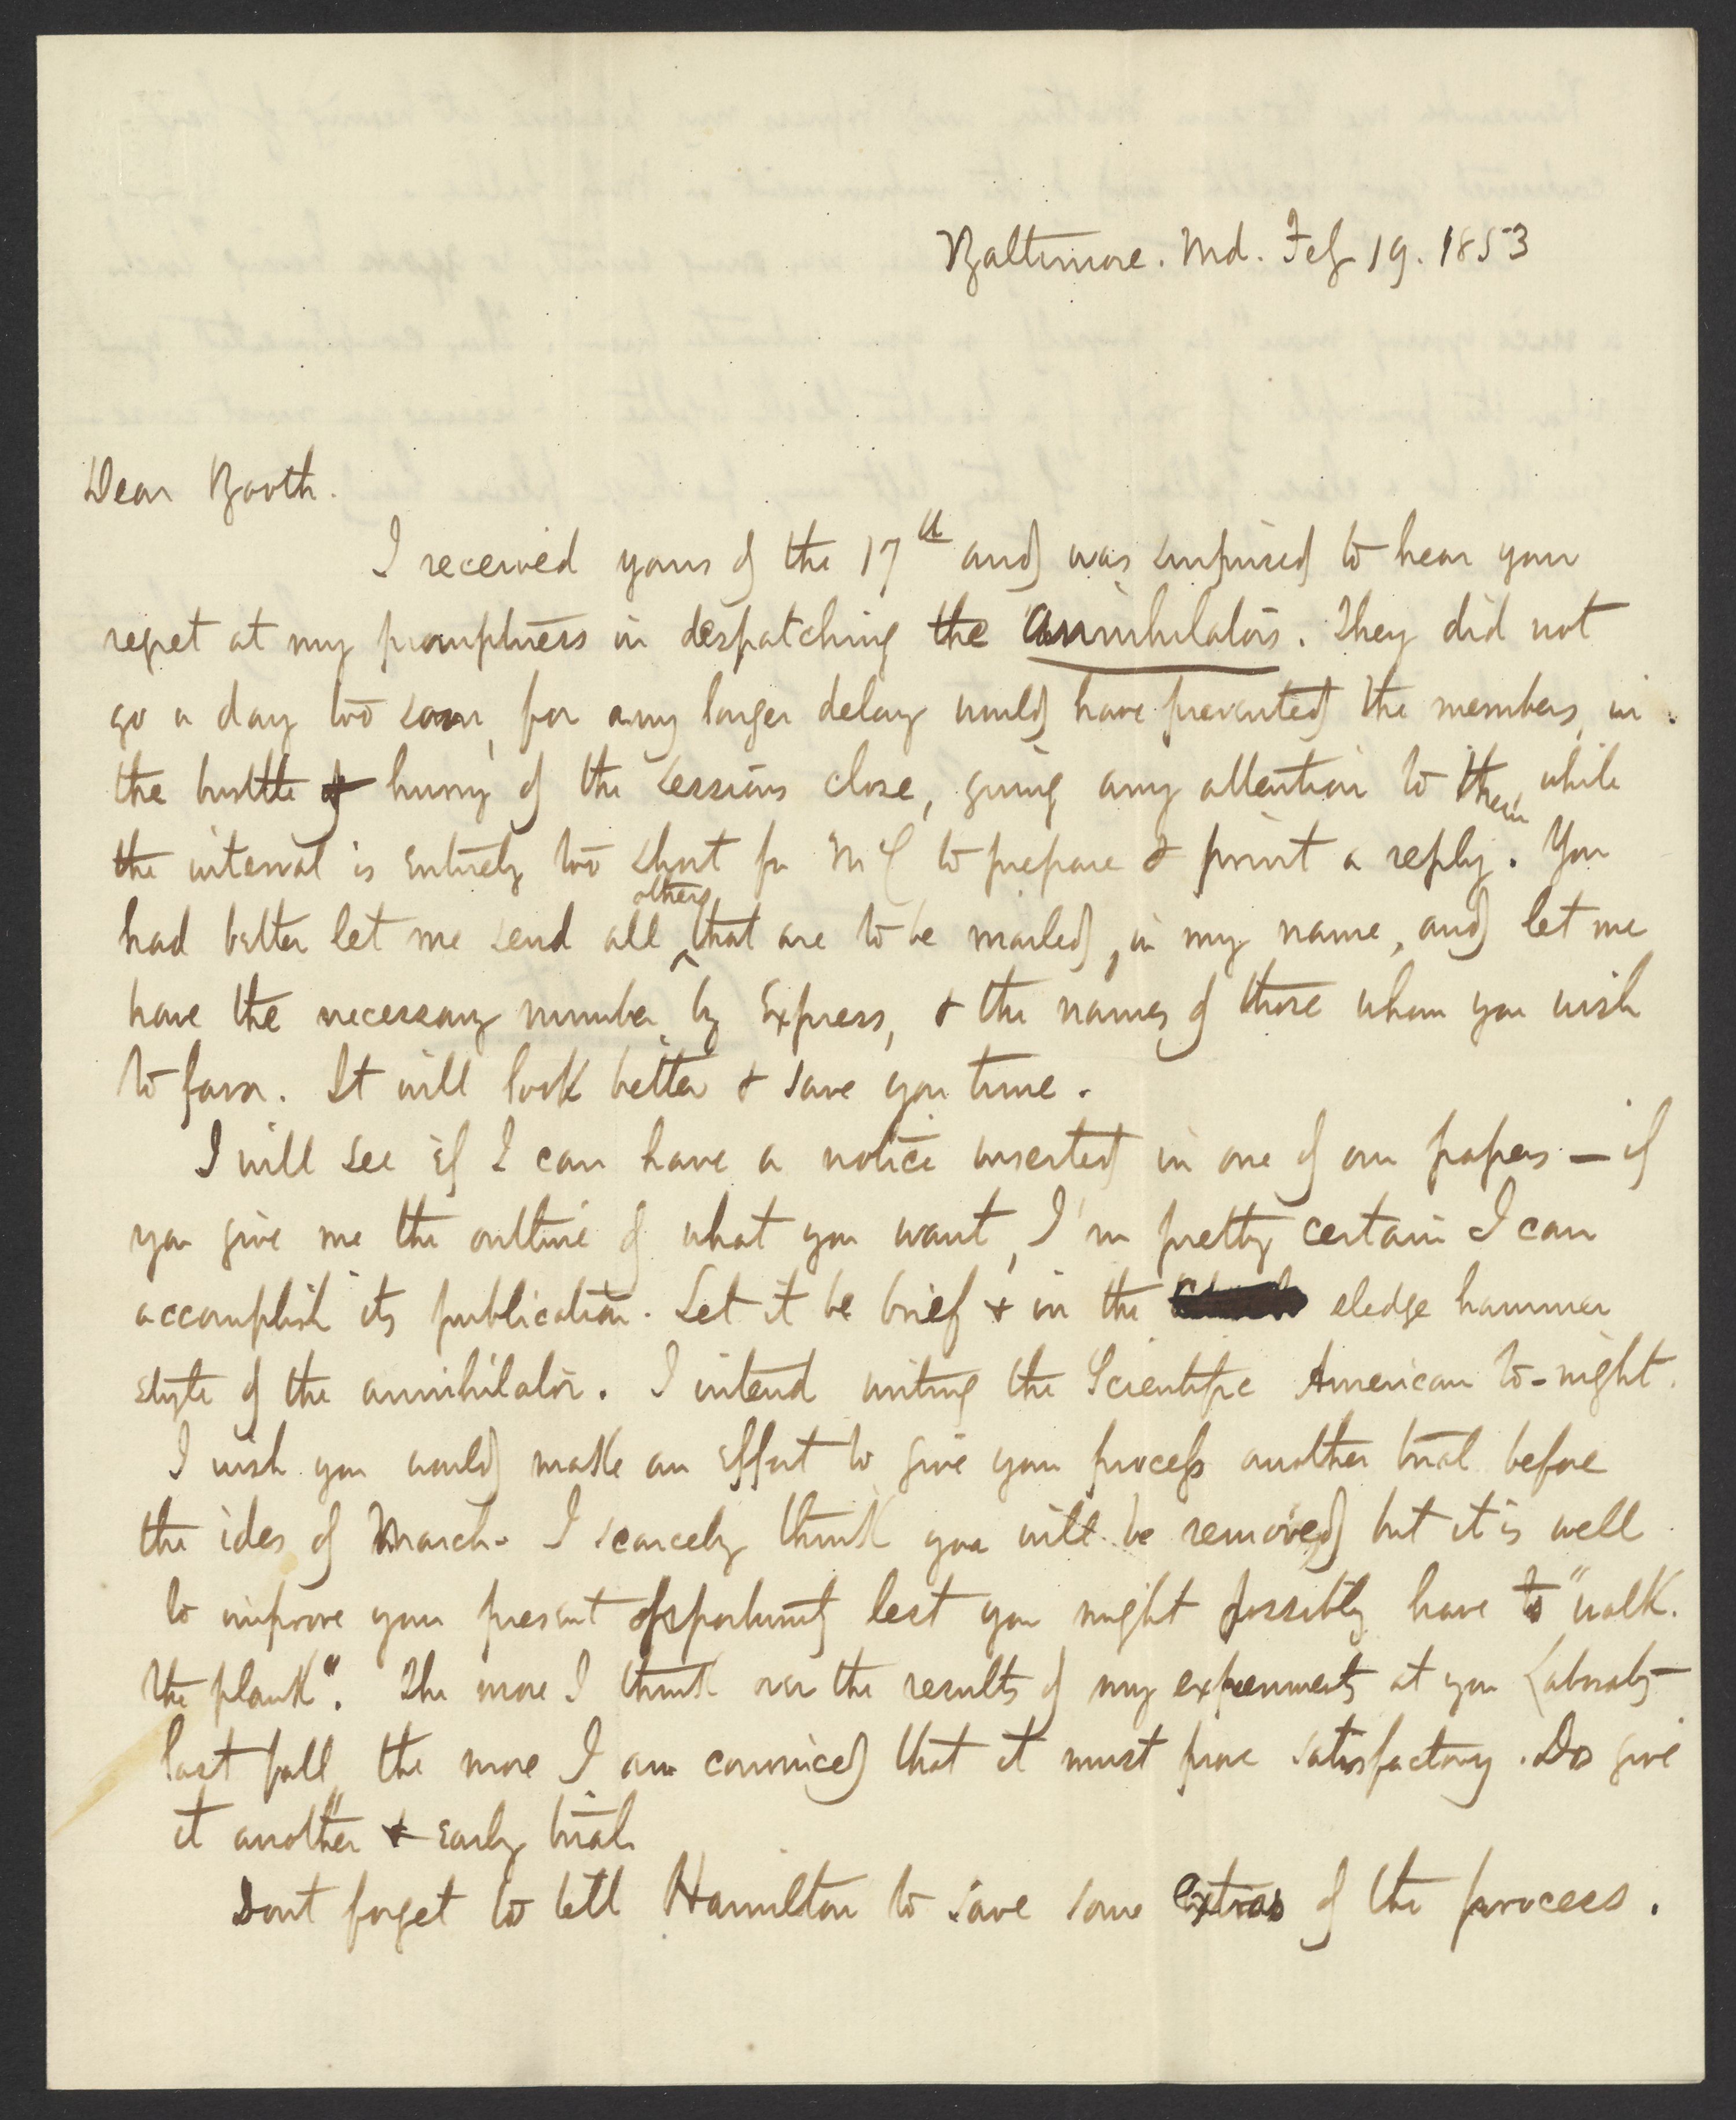 Baltimore. Md. Feb 19. 1853
Dear Booth.
I received yours of the 17th and was surprised to hear your
regret at my promptness in despatching the annihilators. They did not
go a day too soon, for any longer delay would have prevented the members, in
the bustle & hurry of the sessions close, giving any attention to them, while
the interval is entirely too short for McC to prepare & print a reply. You
had better let me send all others that are to be mailed, in my name, and let me
have the necessary number by Express, & the names of those whom you wish
to favor. It will look better & save you time.
I will see if I can have a notice inserted in one of our papers — if
you give me the outline of what you want, I'm pretty certain I can
accomplish its publication. Let it be brief & in the sledge hammer
style of the annihilator. I intend writing the Scientific American to-night.
I wish you would make an effort to give your process another trial before
the ides of March. I scarcely think you will be removed but it is well
to improve your present opportunity lest you might possibly have to "walk
the plank". The more I think over the results of my experiments at your Laboraty
last fall, the more I am convinced that it must prove satisfactory. Do give
it another & early trial
Dont forget to tell Hamilton to save some extras of the process.